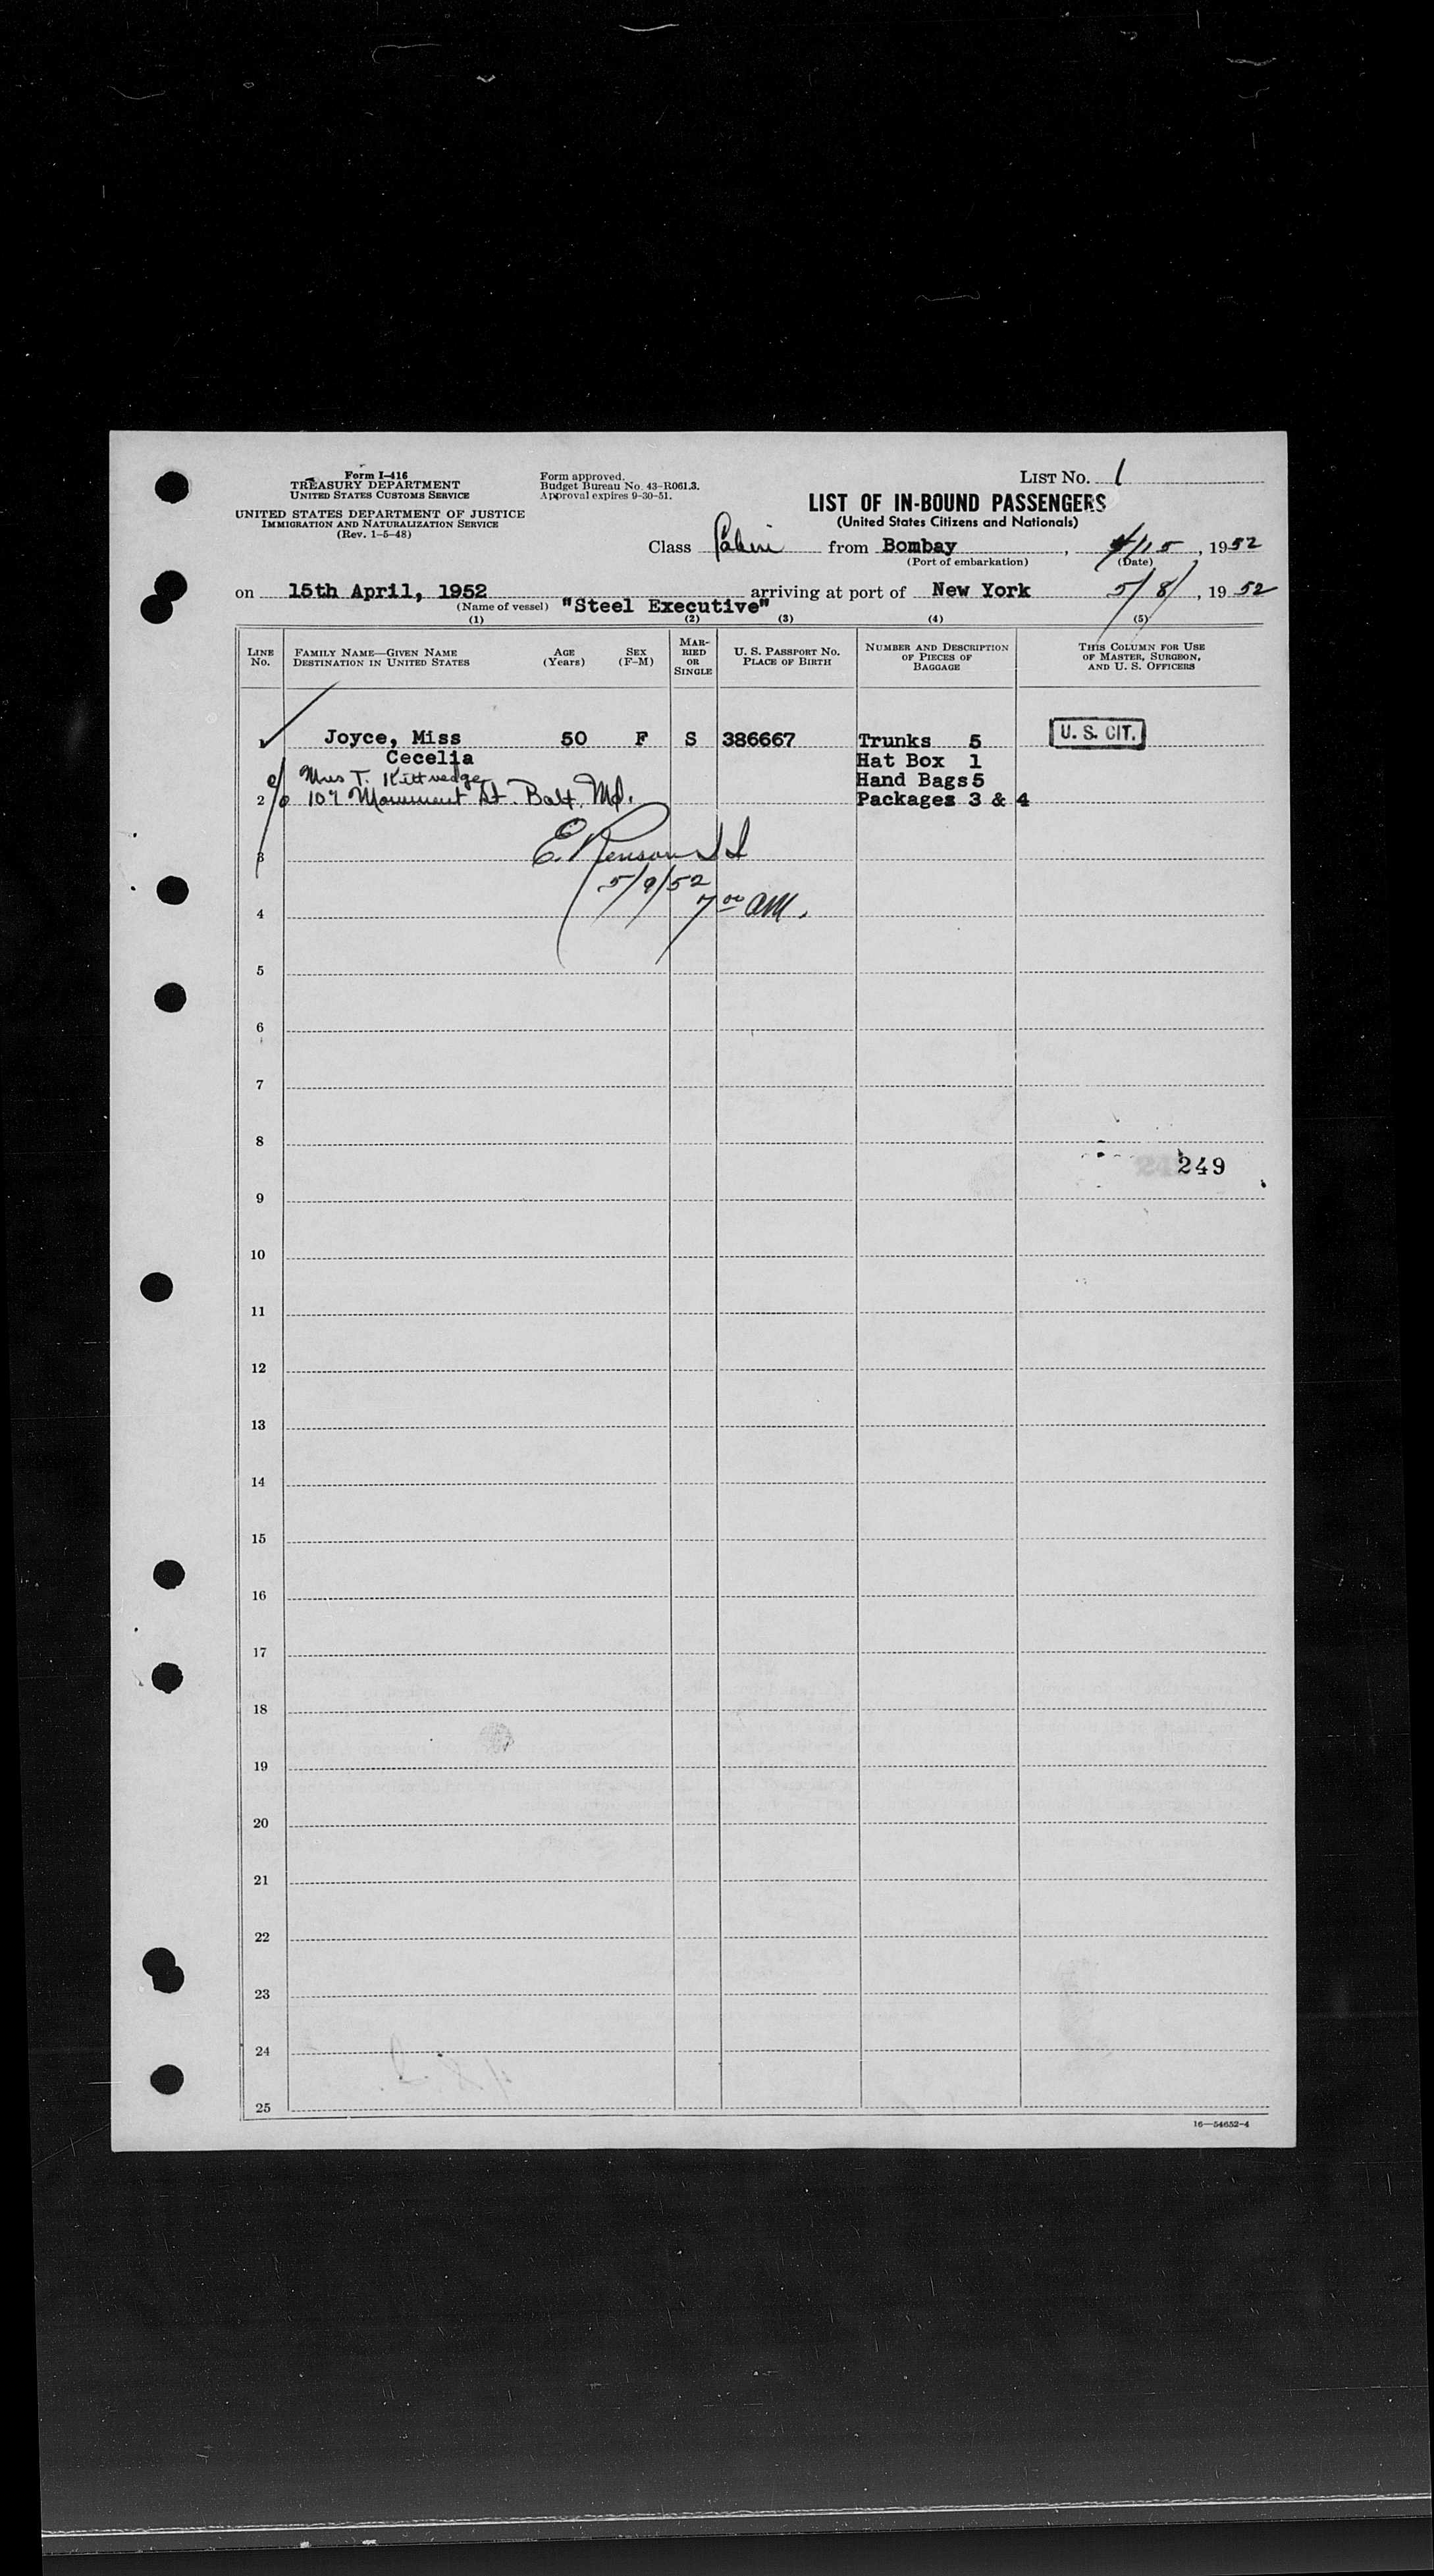 Form I-416
TREASURY DEPARTMENT
UNITED STATES CUSTOMS SERVICE
UNITED STATES DEPARTMENT OF JUSTICE
IMMIGRATION AND NATURALIZATION SERVICE
(Rev. 1-5-48)
Form approved.
Budget Bureau No. 43-R061.3.
Approval expires 9-30-51.
LIST NO. 1
LIST OF IN-BOUND PASSENGERS
(United States Citizens and Nationals)
Class Cabin from Bombay, 4/15, 1952
(Port of embarkation) (Date)
on 15th April, 1952 arriving at port of New York 5/8/, 1952
(Name of vessel) "Steel Executive"
(1) (2) (3) (4) (5)
LINE NO. FAMILY NAME—GIVEN NAME DESTINATION IN UNITED STATES AGE (Years) SEX (F-M) MARRIED OR SINGLE U. S. PASSPORT NO. PLACE OF BIRTH NUMBER AND DESCRIPTION OF PIECES OF BAGGAGE THIS COLUMN FOR USE OF MASTER, SURGEON, AND U. S. OFFICERS
Joyce, Miss 50 F S 386667 Trunks 5 U. S. CIT.
Cecelia Hat Box 1
c/o Mrs T. Kittredge Hand Bags 5
2 107 Monument St. Balt. Md. Packages 3 & 4
3 E.
5/9/52
4 7 00 AM.
5
6
7
8
249
9
10
11
12
13
14
15
16
17
18
19
20
21
22
23
24
25
16—54652-4